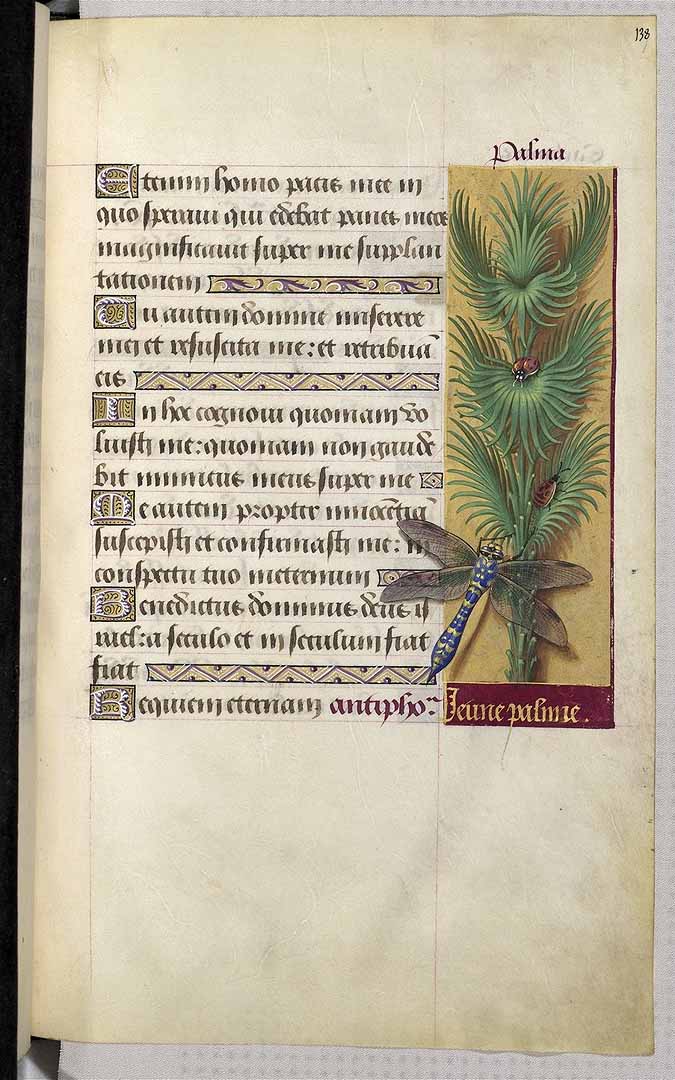 138
Palma
Etenim homo pacis mee in
quo speraui qui edebat panes meos
magnificauit super me supplan
tationem
Tu autem domine miserere
mei et resuscita me: et retribuā
eis
In hoc cognoui quoniam vo
luisti me: quoniam non gaude
bit inimicus meus super me
Me autem propter innocētiā
suscepisti et confirmasti me: in
conspectu tuo ineternum
Benedictus dominus deus isr
rael: a seculo et in seculum fiat
fiat
Requiem eternam antipho.
Jeune palme.